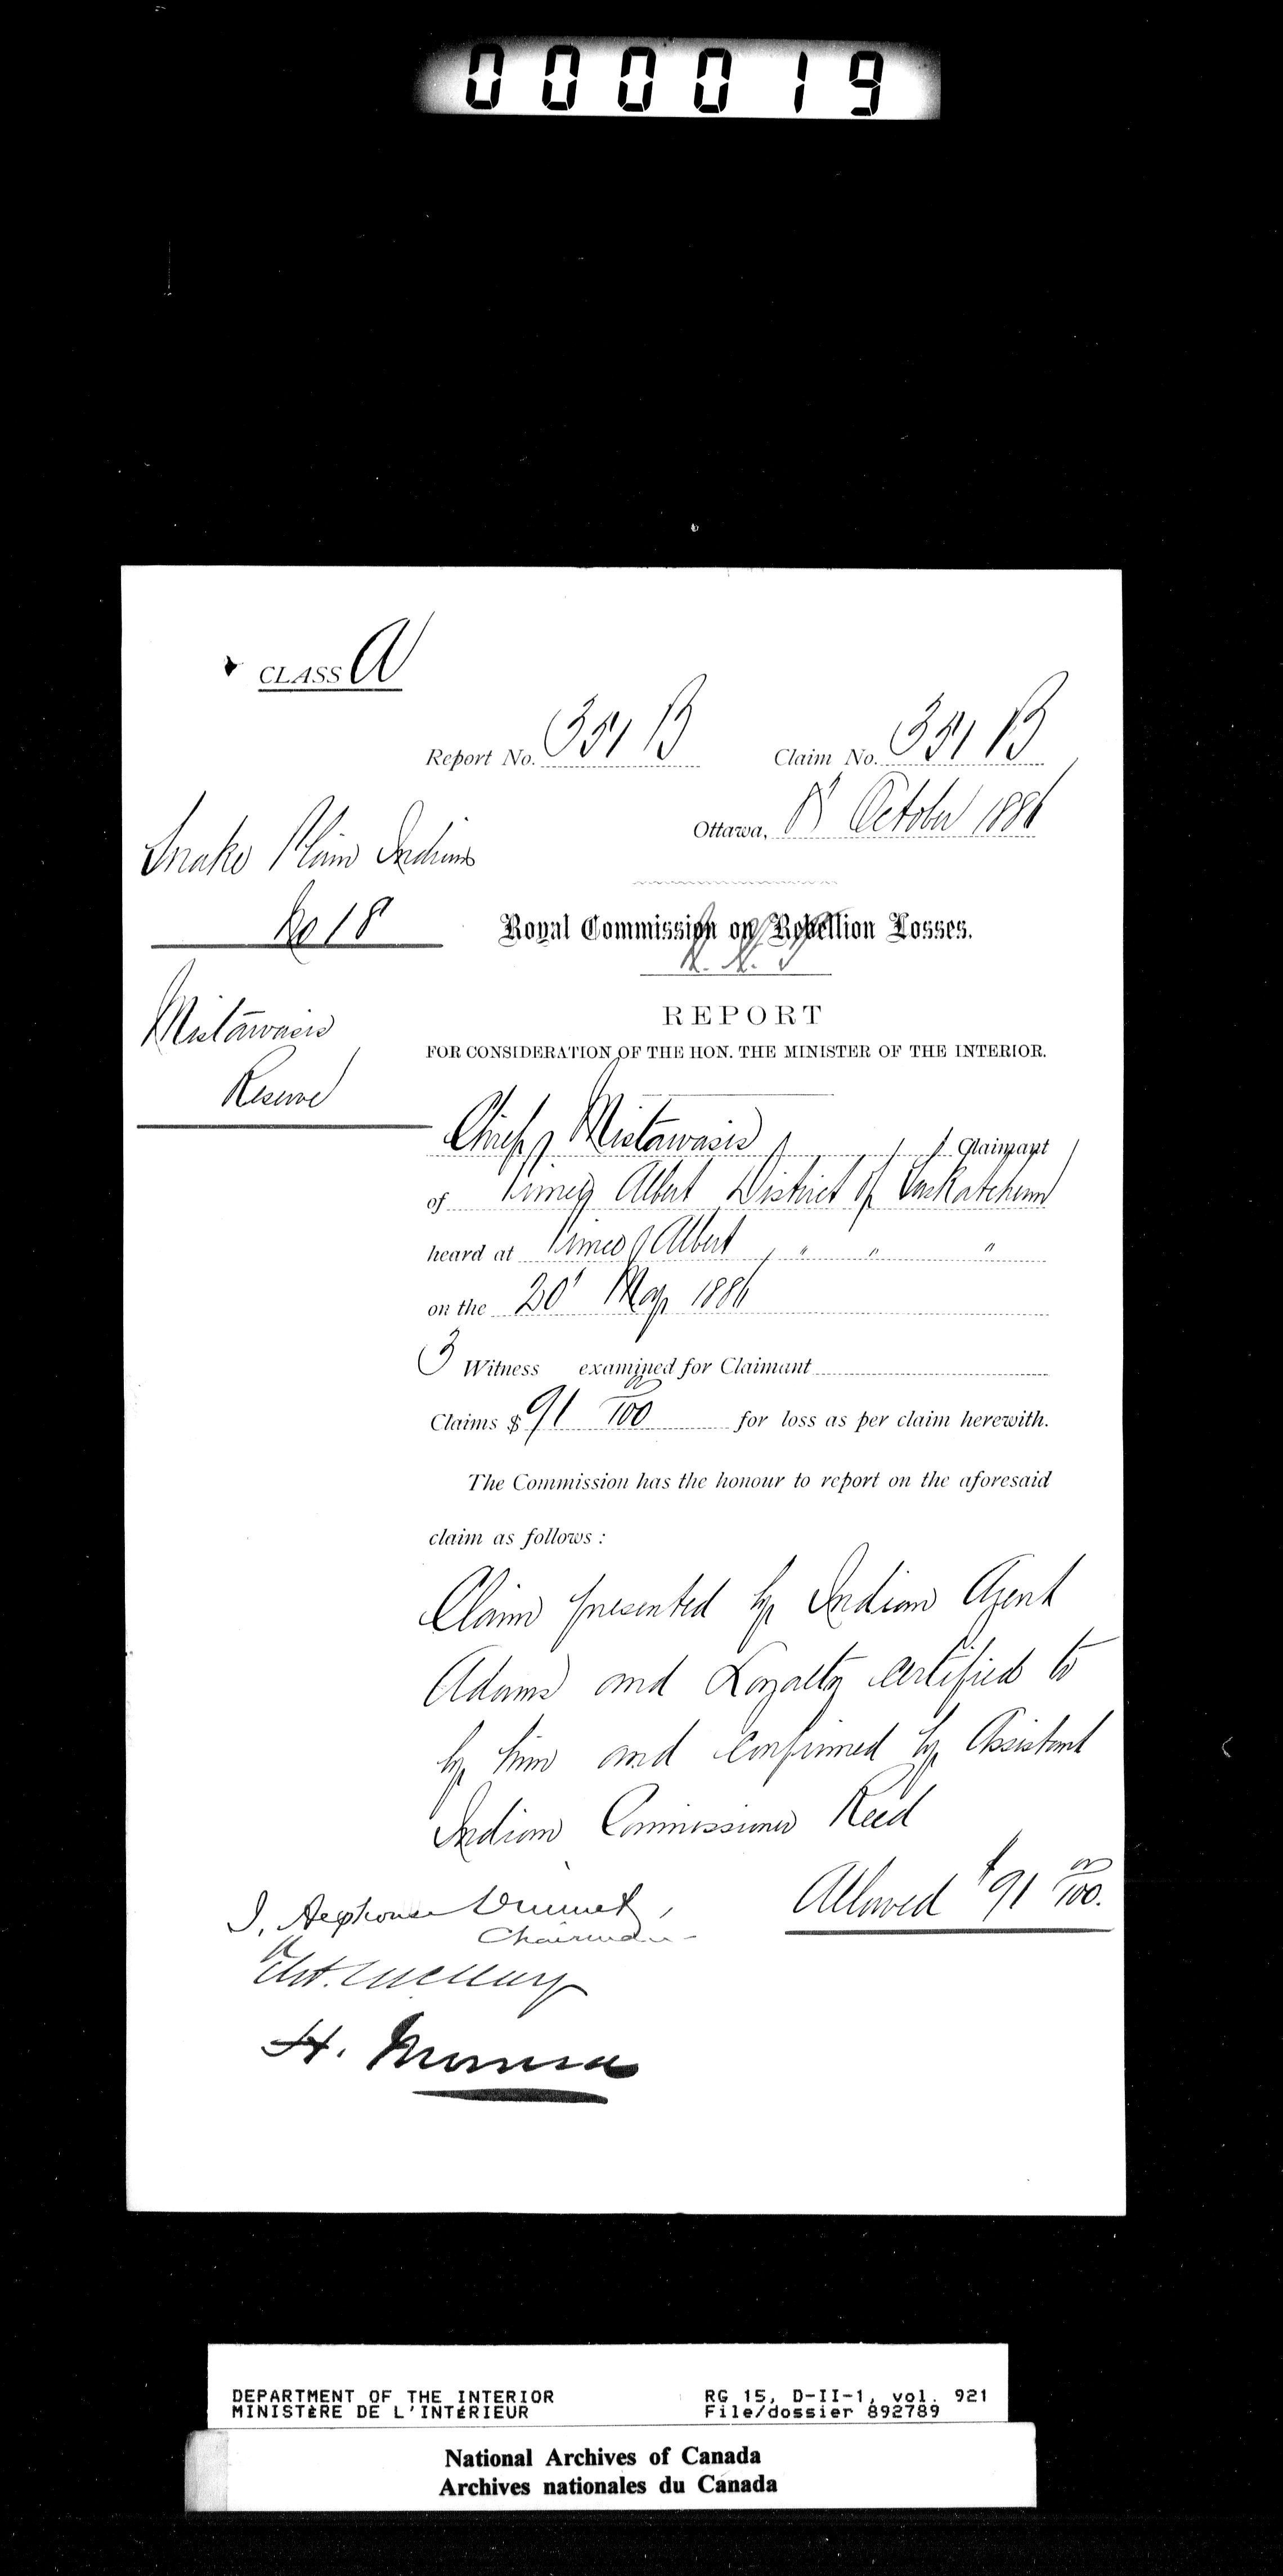 000019
CLASS A
Report No. 351 B Claim No. 351 B
Ottawa, 8' October 1886
Snake Plain Indians
No 18
Royal Commission on Rebellion Losses.
N. W. T.
Mistawasis
Reserve
REPORT
FOR CONSIDERATION OF THE HON. THE MINISTER OF THE INTERIOR.
Chief Mistawasis Claimant
of Prince Albert District of Saskatchewan
heard at Prince Albert , " " "
on the 20' May 1886
3 Witness examined for Claimant
Claims $ 91 00/100 for loss as per claim herewith.
The Commission has the honour to report on the aforesaid
claim as follows :
Claim presented by Indian Agent
Adams and Loyalty certified to
by him and confirmed by Assistant
Indian Commissioner Reed
Allowed $91 00/100.
J. Alphonse Ouimet,
Chairman
H. Muma
DEPARTMENT OF THE INTERIOR RG 15, D-II-1, vol. 921
MINISTÈRE DE L'INTÉRIEUR File/dossier 892789
National Archives of Canada
Archives nationales du Canada